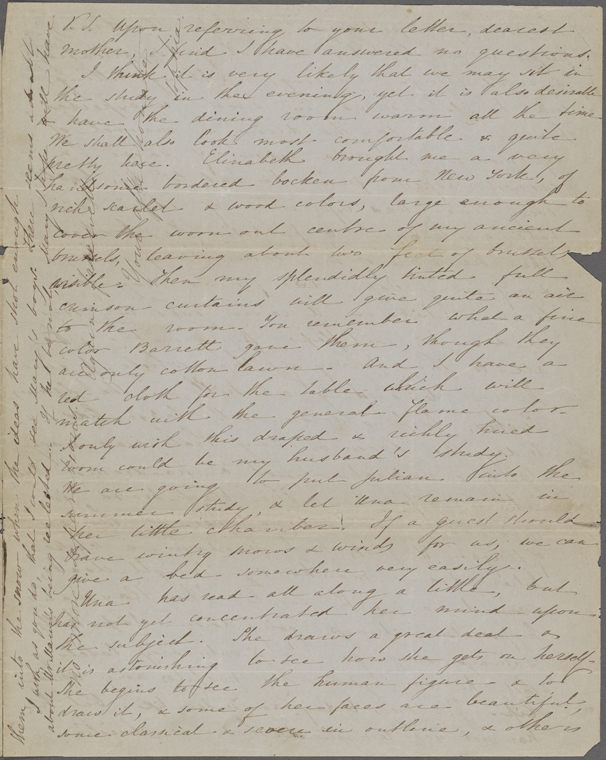 P.S. Upon referring to your letter, dearest
mother, I find I have answered no questions.
I think it is very likely that we may sit in
the study in the evening, yet it is also desirable
to have the dining room warm all the time
We shall also look most comfortable & quite
pretty here. Elizabeth brought me a very
handsome bordered bocken from New York, of
rich scarlet & wood colors, large enough to
cover the worn out centre of my ancient
brussels, leaving about two feet of brussels
visible. Then my splendidly tinted full
crimson curtains will give quite an air
to the room. You remember what a fine
color Barrett gave them, though they
are only cotton lawn. And I have a
red cloth for the table which will
match with the general flame color.
I only wish this draped & richly hued
room could be my husband's study.
We are going to put Julian into the
summer study, & let Una remain in
her little chamber. If a guest should
brave wintry snows & winds for us, we can
give a bed somewhere very easily.
Una has read all along a little, but
has not yet concentrated her mind upon
the subject. She draws a great deal &
it is astonishing to see how she gets on herself.
She begins to see the human figure & to
draw it, & some of her faces are beautiful,
some classical & severe in outline, & others
them into the snow when the ideas have shot enough
I wish as you do, that I could see Mary's boys. There seems
about Mr Mann's being reelected. If he is not